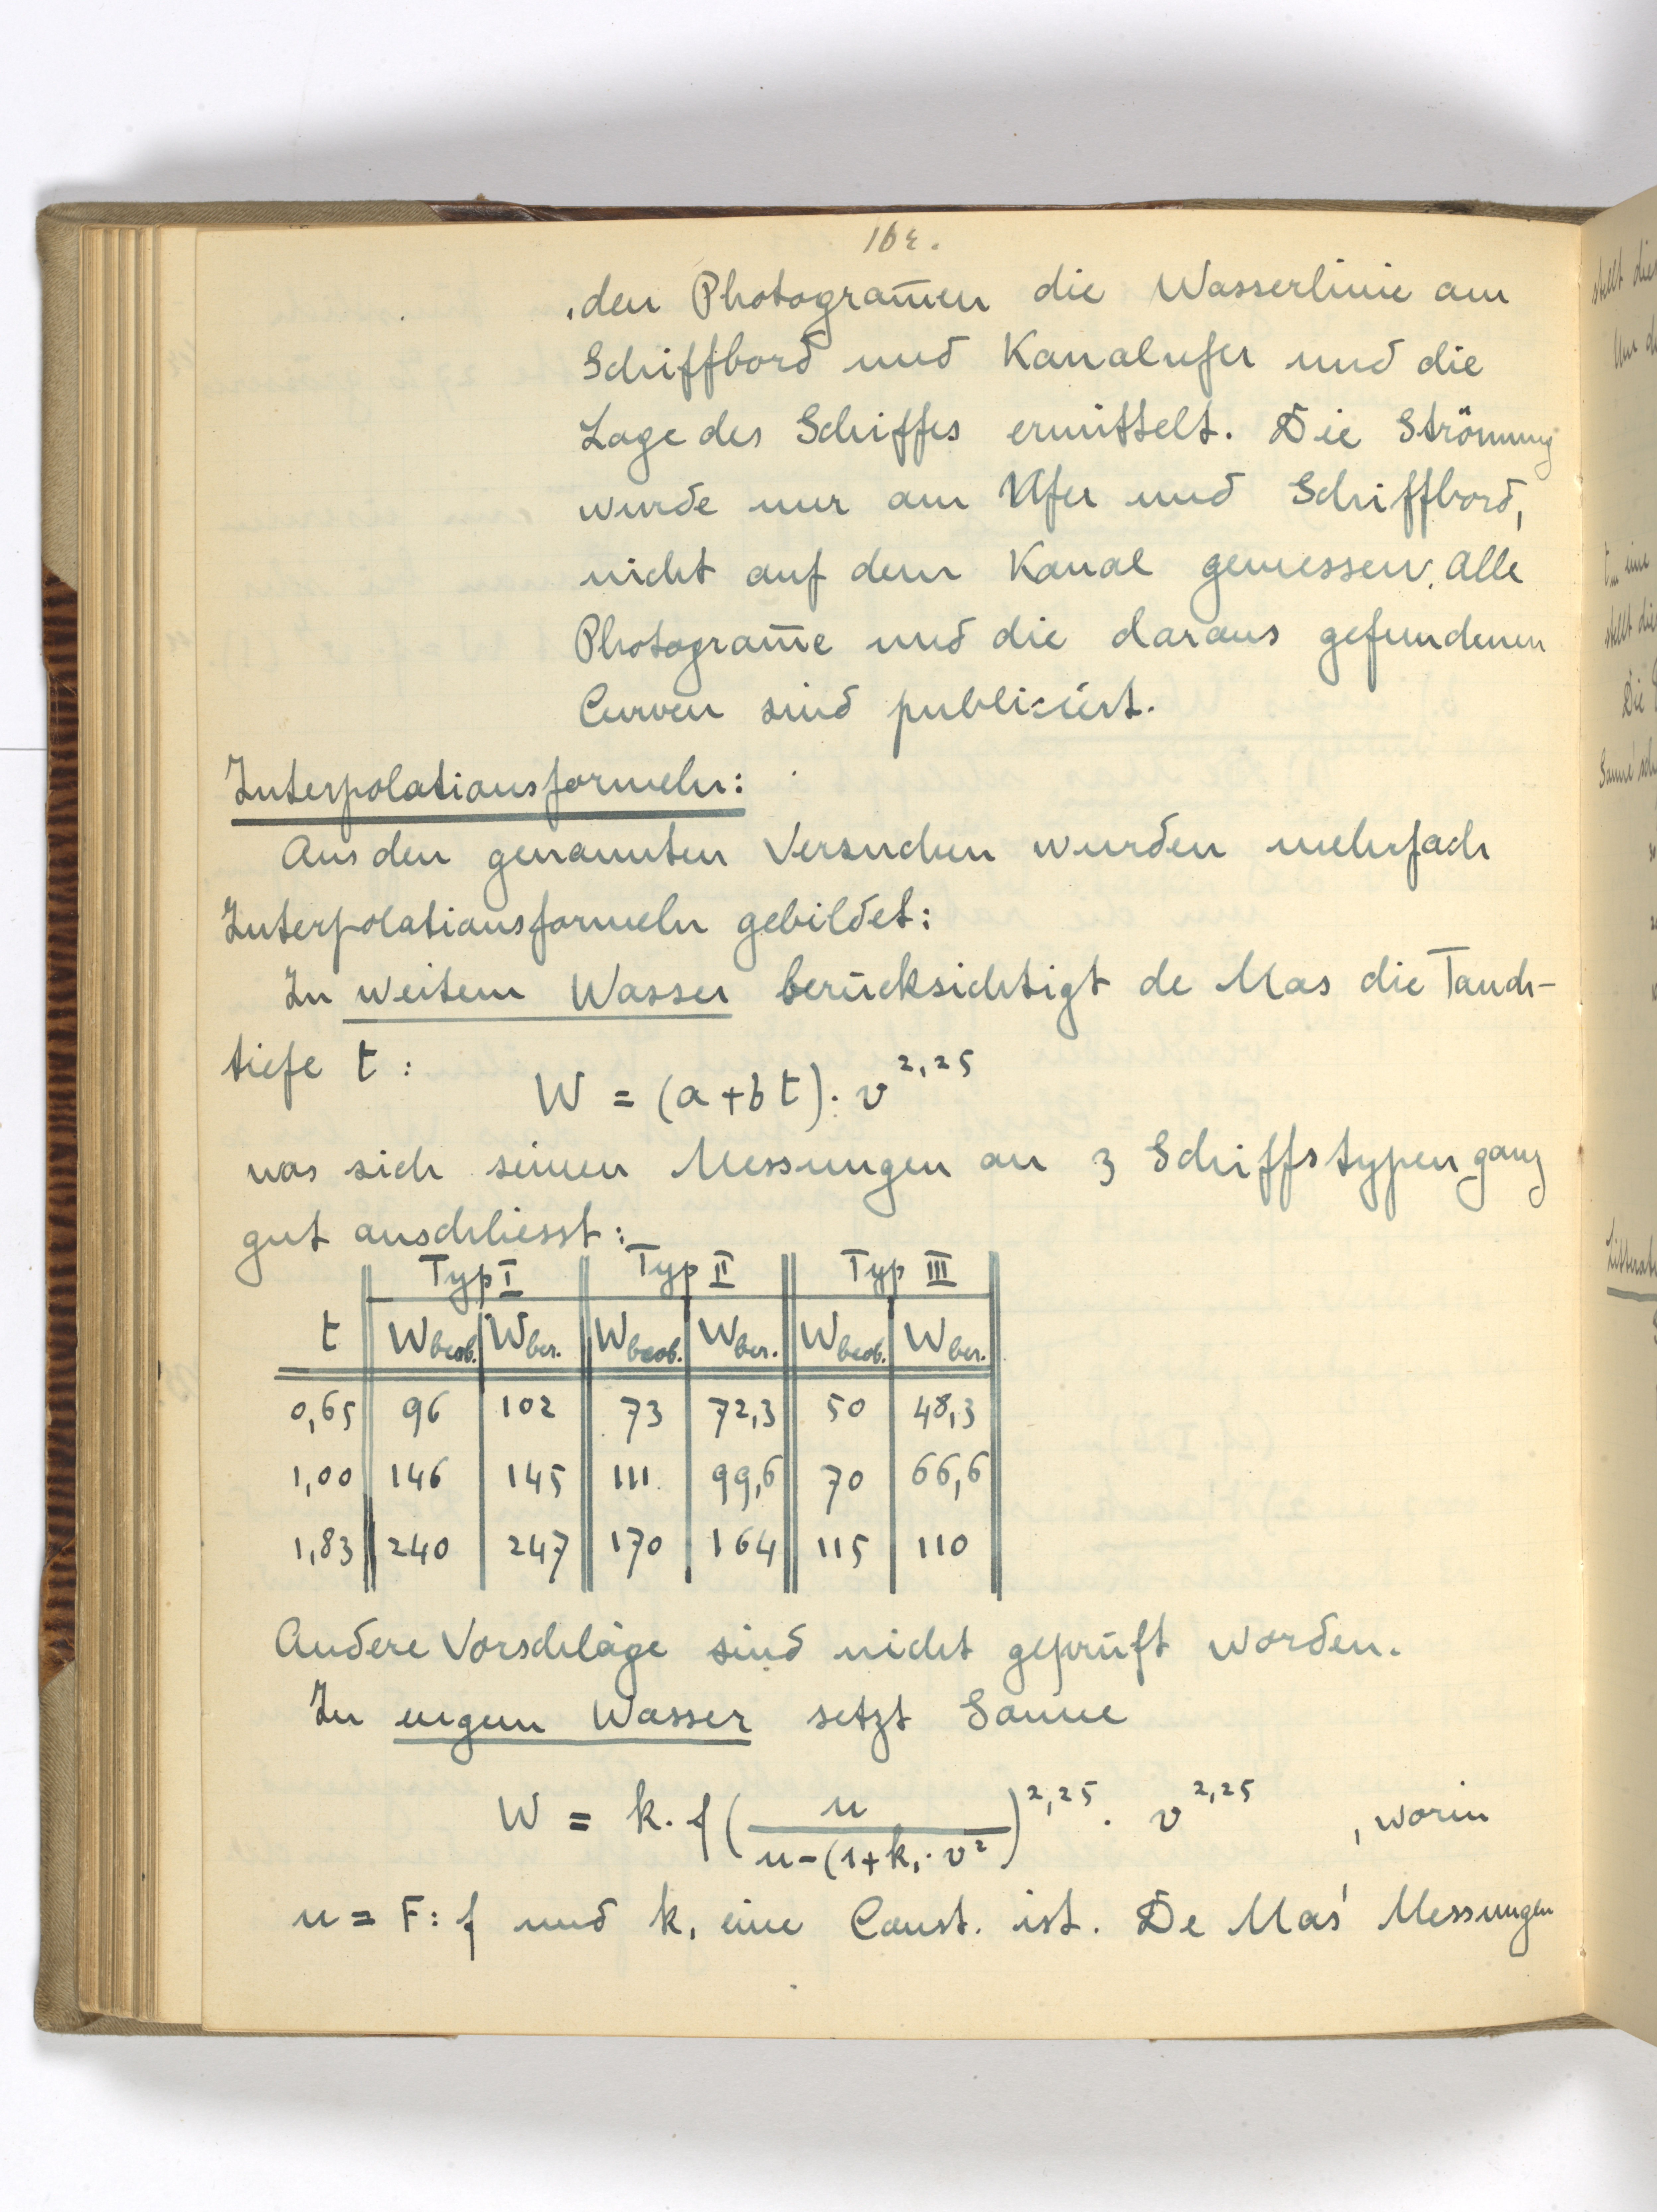 162.
den Photogram̅en die Wasserlinie am
Schiffbord und Kanalufer und die
Lage des Schiffes ermittelt. Die Strömung
wurde nur am Ufer und Schiffbord,
nicht auf dem Kanal gemessen. Alle
Photogram̅e und die daraus gefundenen
Curven sind publiciert.
Interpolationsformeln:
Aus den genannten Versuchen wurden mehrfach
Interpolationsformeln gebildet:
In weitem Wasser berücksichtigt de Mas die Tauch-
tiefe t:
W = (a+bt). v^2,25
was sich seinen Messungen an 3 Schiffstypen ganz
gut anschliesst:
Typ I Typ II Typ III
t Wbeob. Wber. Wbeob. Wber. Wbeob. Wber.
0,65 96 102 73 72,3 50 48,3
1,00 146 145 111 99,6 70 66,6
1,83 240 247 170 164 115 110
Andere Vorschläge sind nicht geprüft worden.
In engem Wasser setzt Sanne
W = k. f (n / n-(1+k₁.v²)^2,25 . v^2,25 , worin
n = F: f und k₁ eine Const. ist. De Mas' Messungen